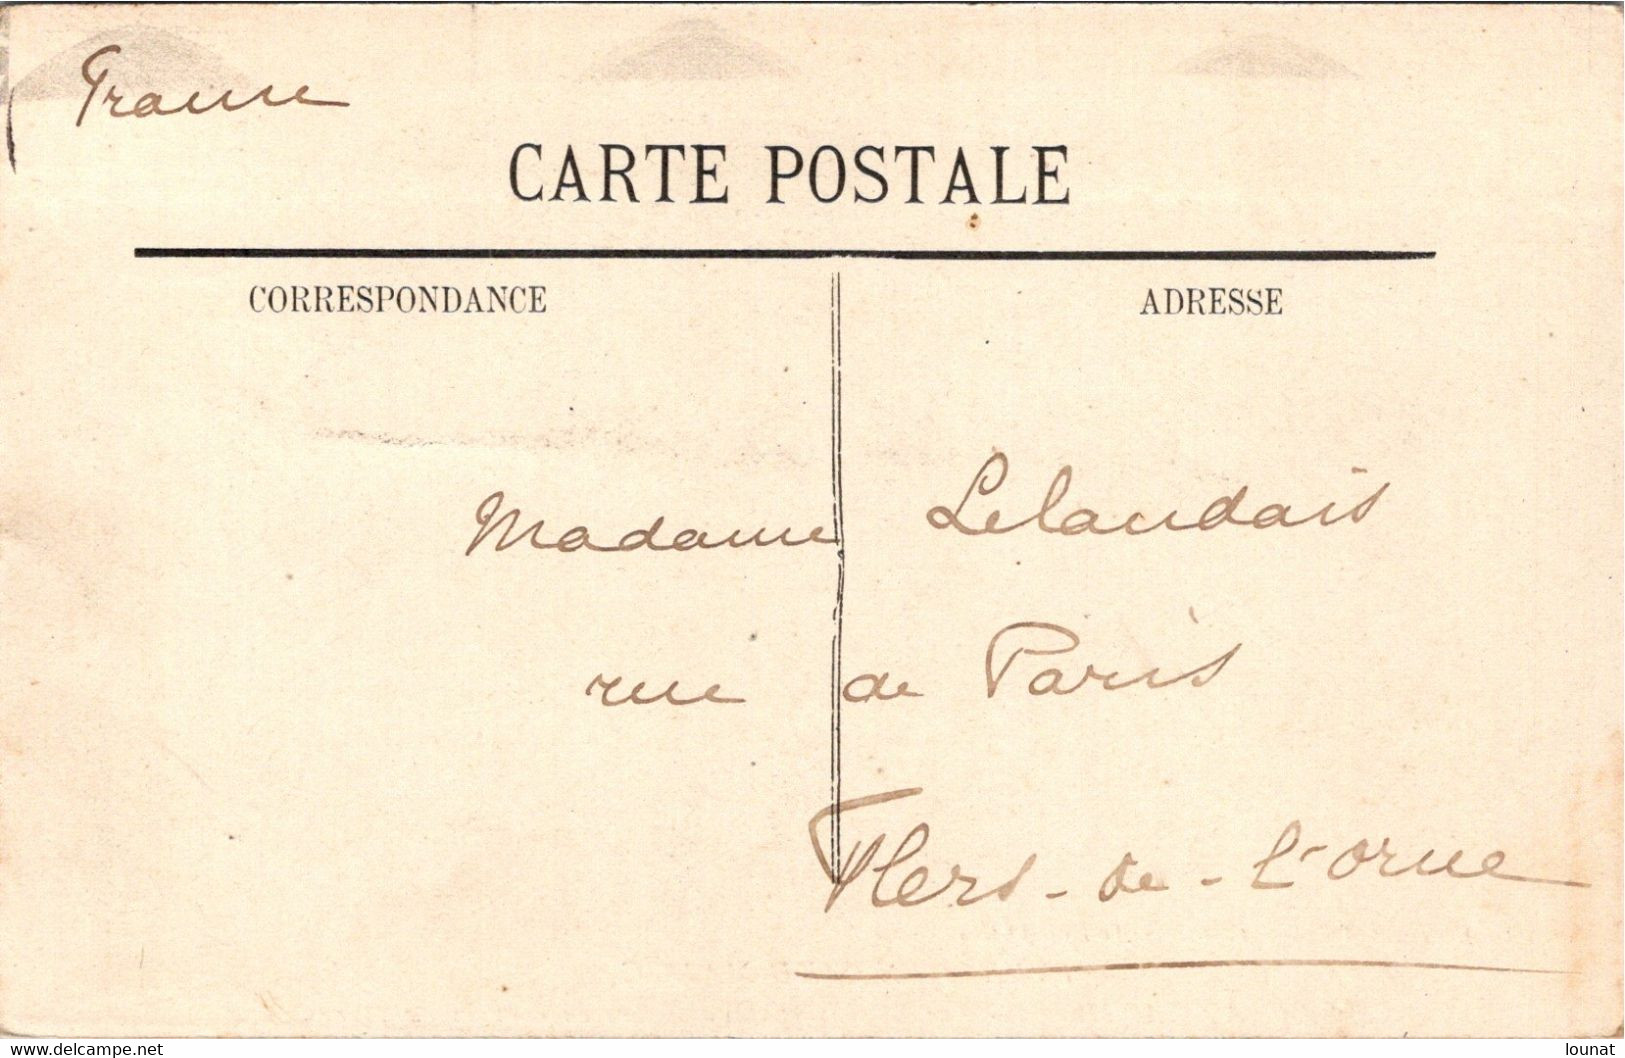 CARTE POSTALE
CORRESPONDANCE
ADRESSE
Madame Lelandais
rue de Paris
Flers-de-l'orne
www.delcampe.net
lounat